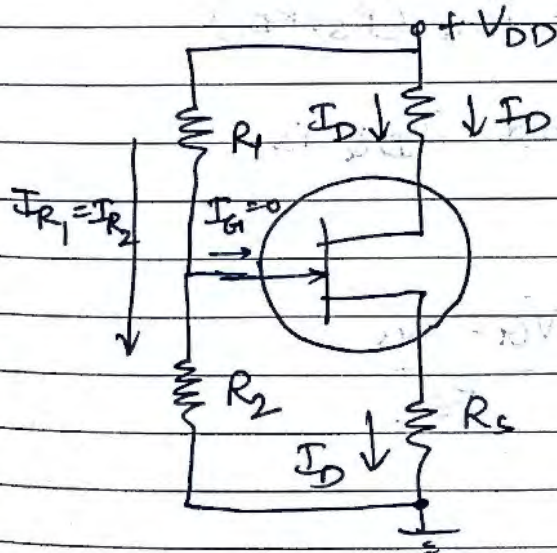 + VDD
ID ↓ ↓ ID
R1
IR1 = IR2
IG = 0
R2
Rs
ID ↓